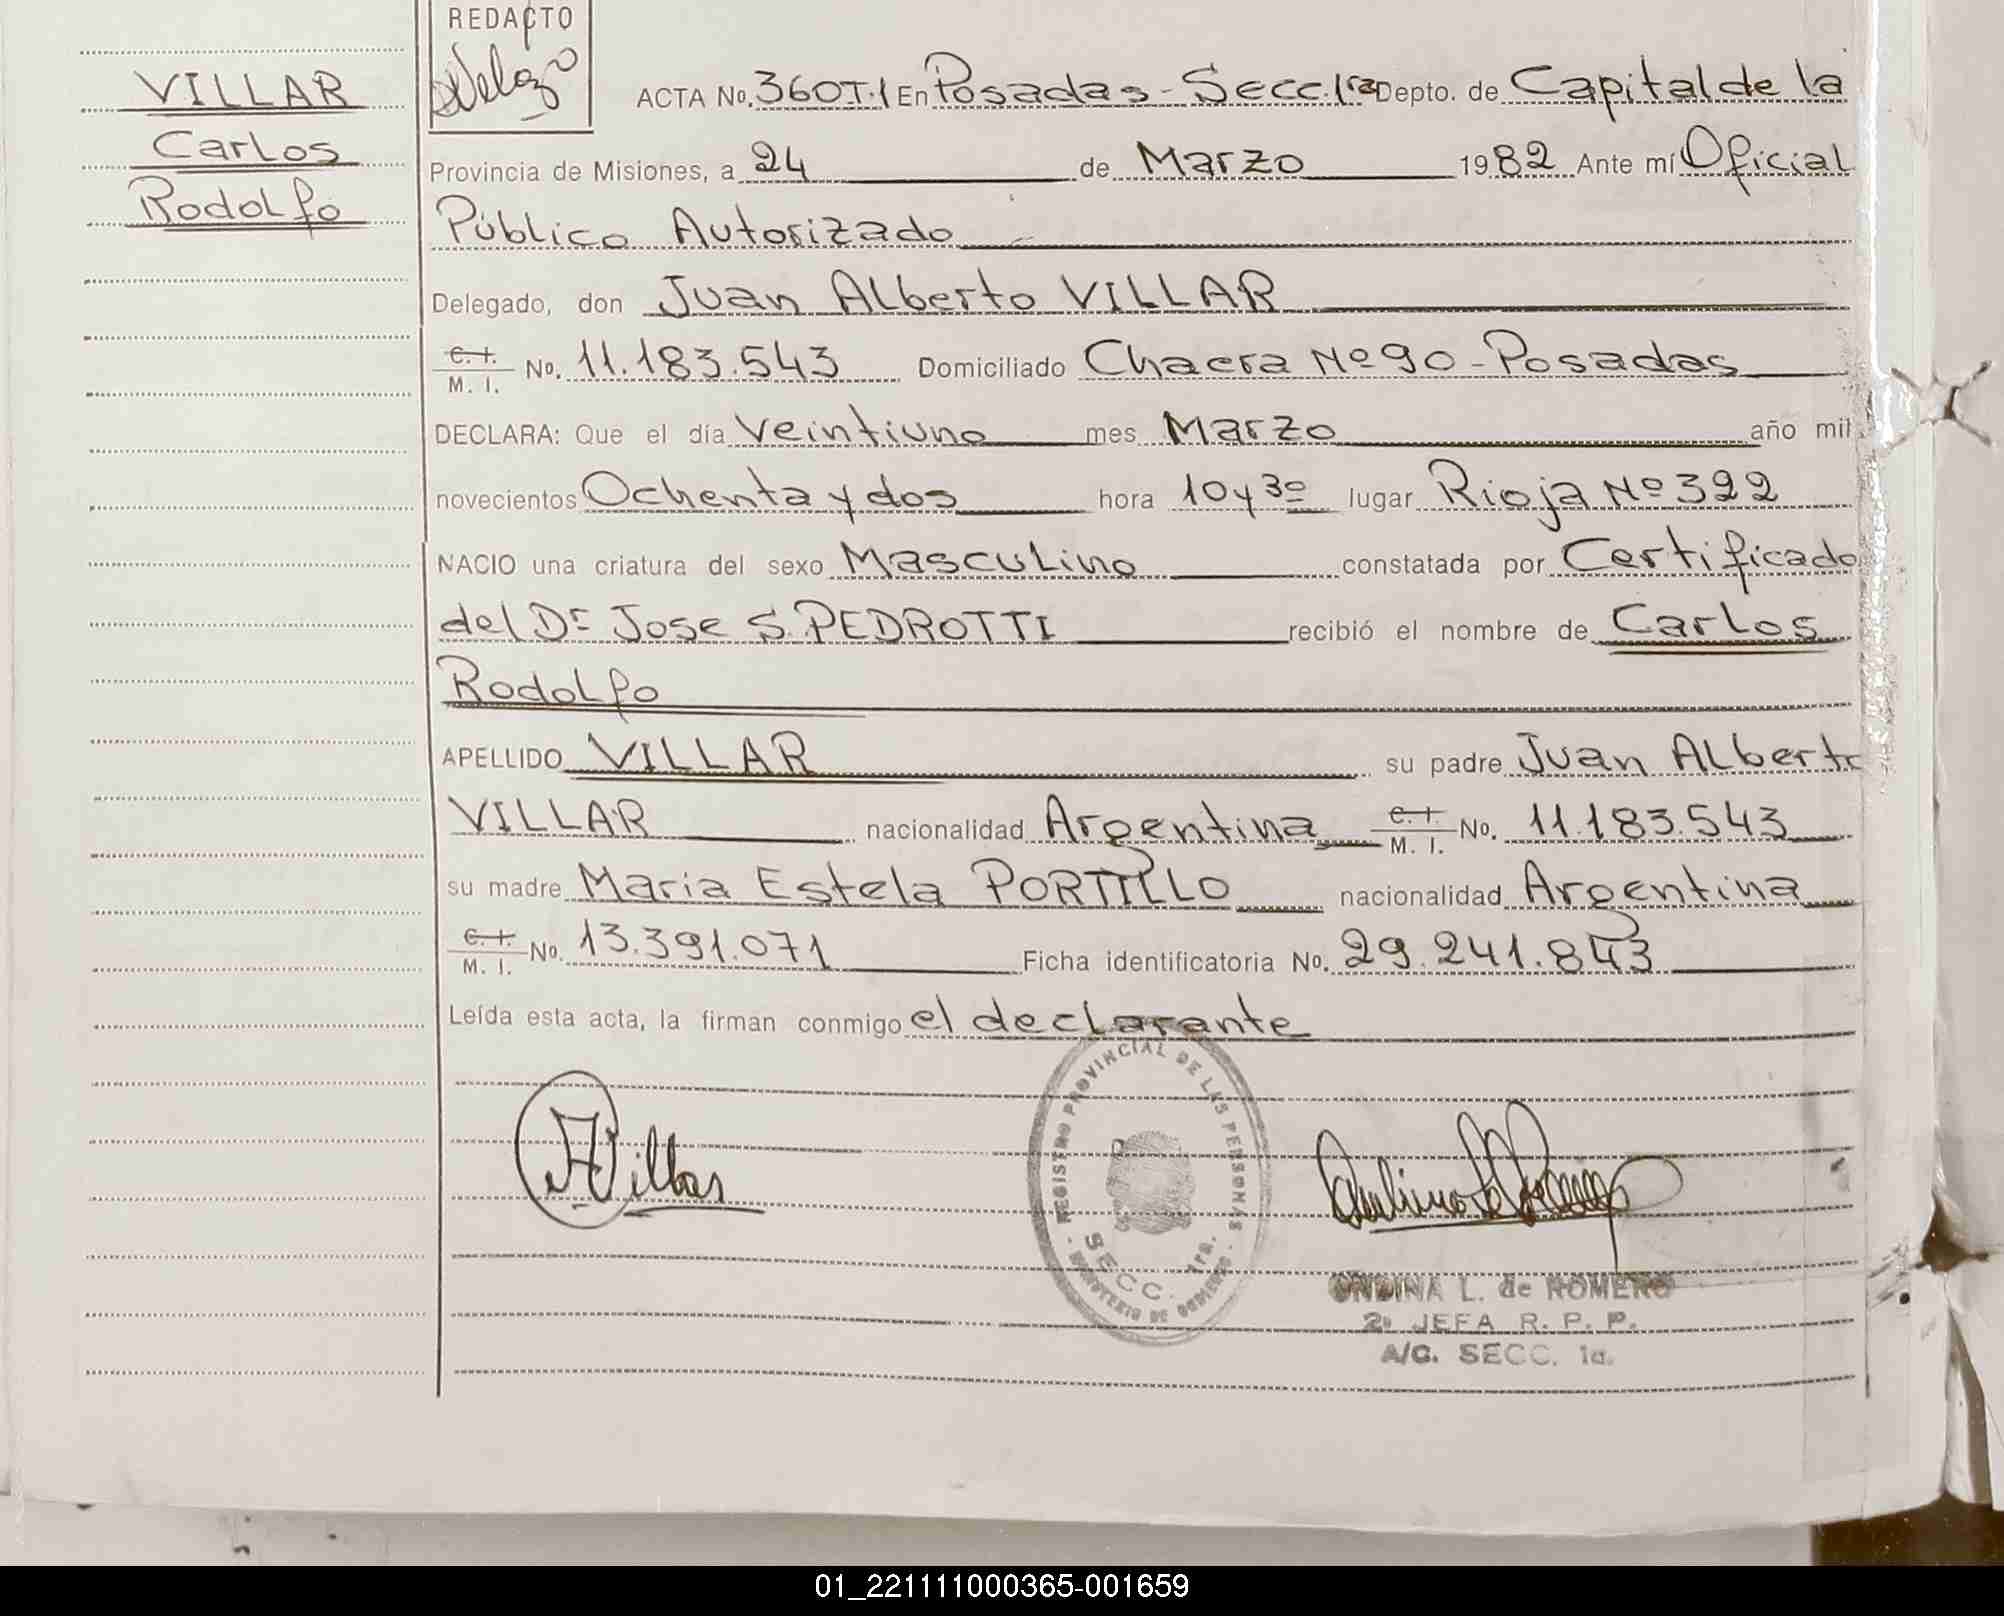 REDACTO
VILLAR
Carlos
Rodolfo
ACTA No. 360T.1 En Posadas - Secc. 1ra Depto. de Capital de la
Provincia de Misiones, a 24 de Marzo 1982 Ante mí Oficial
Público Autorizado
Delegado, don Juan Alberto VILLAR
C. I.
M. I. No. 11.183.543 Domiciliado Chacra Nº 90 - Posadas
DECLARA: Que el día veintiuno mes Marzo año mil
novecientos Ochenta y dos hora 10 y 30 lugar Rioja Nº 322
NACIO una criatura del sexo Masculino constatada por Certificado
del Dr Jose S. PEDROTTI recibió el nombre de Carlos
Rodolfo
APELLIDO VILLAR su padre Juan Alberto
VILLAR nacionalidad Argentina C. I. M. I. No. 11.183.543
su madre Maria Estela PORTILLO nacionalidad Argentina
C. I. M. I. No. 13.391.071 Ficha identificatoria No. 29.241.843
Leída esta acta, la firman conmigo el declarante
REGISTRO PROVINCIAL DE LAS PERSONAS
SECC. 1ra.
MINISTERIO DE GOBIERNO
Villar
ONDINA L. de ROMERO
2ª JEFA R. P. P.
A/C. SECC. 1a.
01_221111000365-001659